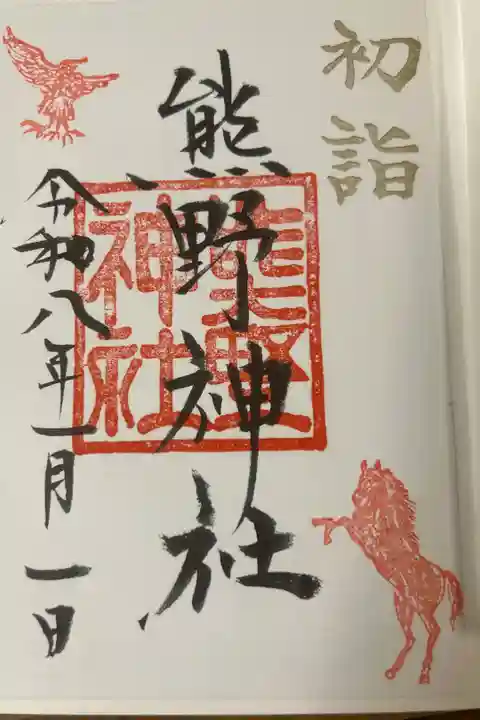 初詣
熊野神社
熊野神社
令和八年一月一日